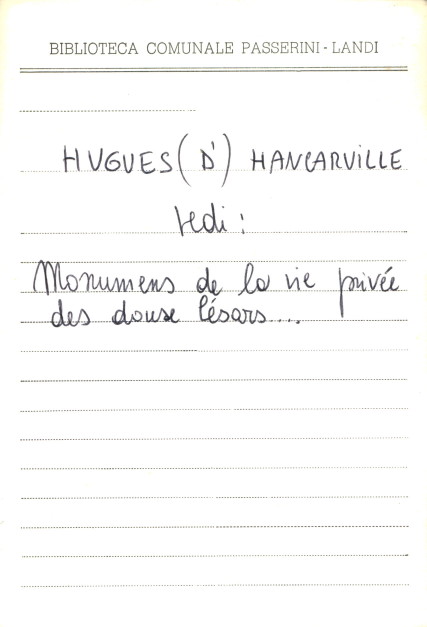 BIBLIOTECA COMUNALE PASSERINI - LANDI
HUGUES (D') HANCARVILLE
Vedi:
Monumens de la vie privée
des douse Césars...